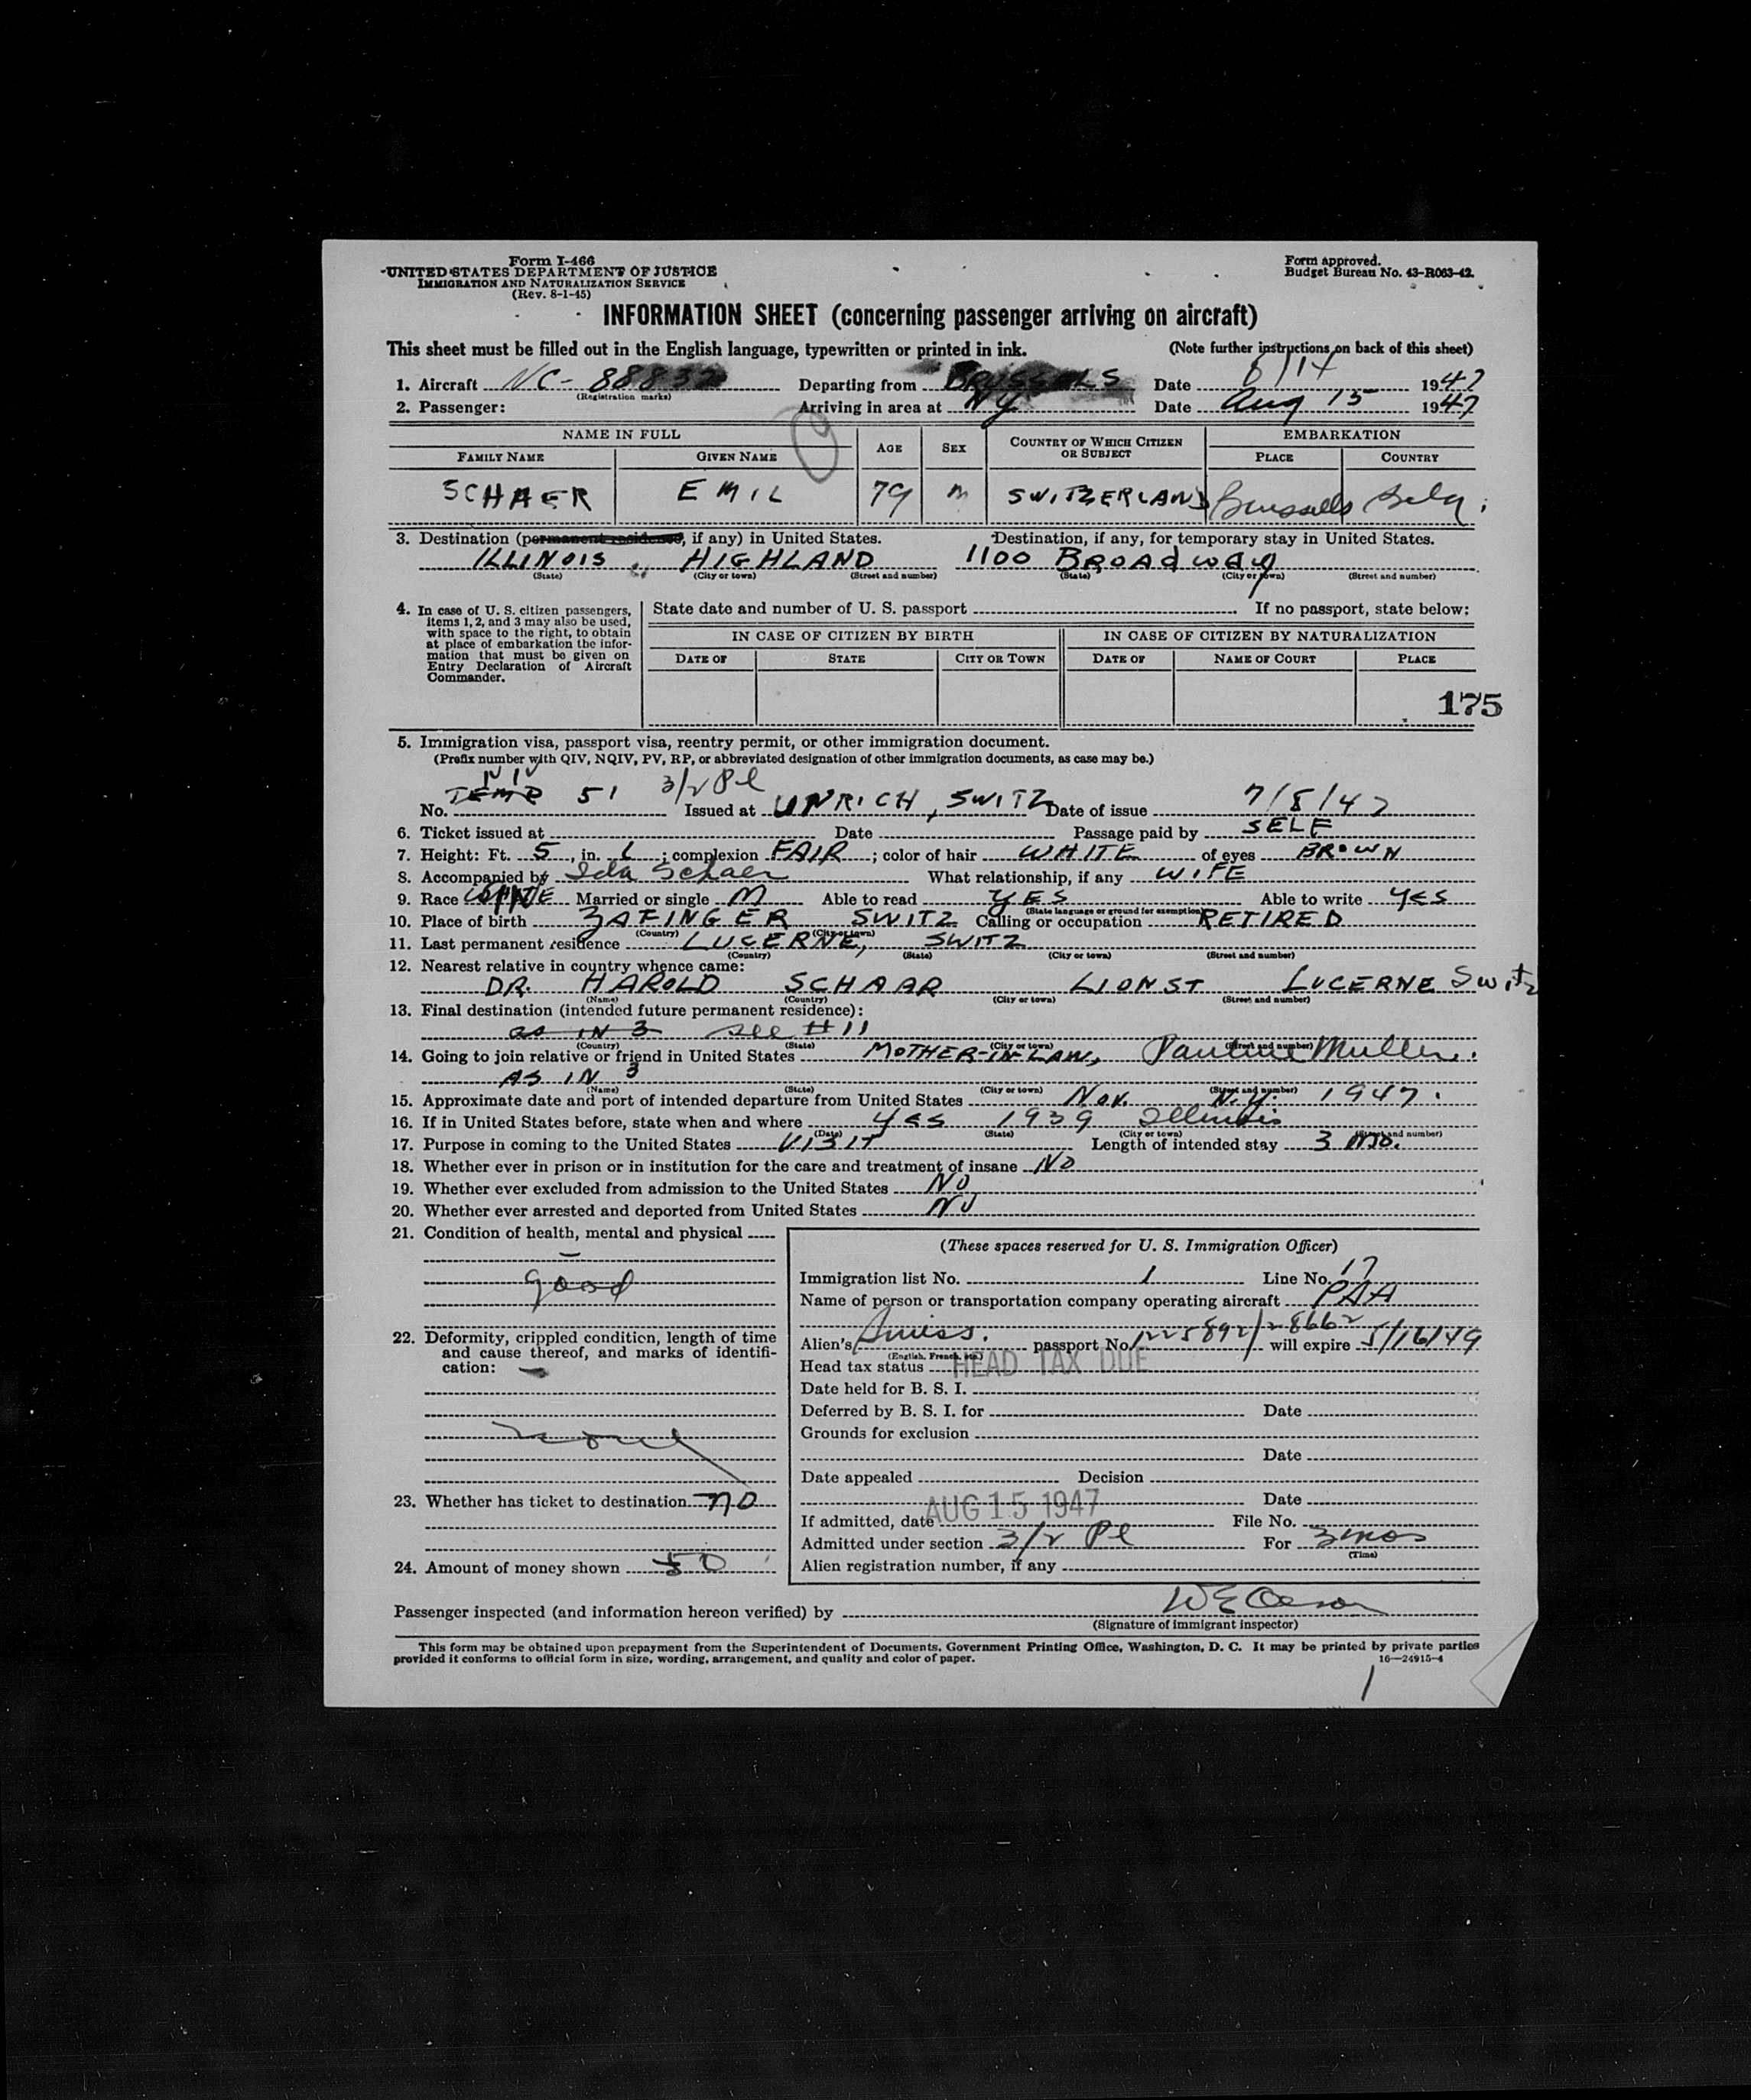 Form I-466
UNITED STATES DEPARTMENT OF JUSTICE
IMMIGRATION AND NATURALIZATION SERVICE
(Rev. 8-1-45)
Form approved.
Budget Bureau No. 43-R063-42.
INFORMATION SHEET (concerning passenger arriving on aircraft)
This sheet must be filled out in the English language, typewritten or printed in ink. (Note further instructions on back of this sheet)
1. Aircraft NC- 88832 Departing from BRUSSELS Date 8/14 1947
(Registration marks)
2. Passenger: Arriving in area at NY Date Aug 15 1947
NAME IN FULL AGE SEX COUNTRY OF WHICH CITIZEN OR SUBJECT EMBARKATION
FAMILY NAME GIVEN NAME PLACE COUNTRY
SCHAER EMIL 79 M SWITZERLAND Brussells Belg.
3. Destination (permanent residence, if any) in United States. Destination, if any, for temporary stay in United States.
ILLINOIS HIGHLAND 1100 BROADWAY
(State) (City or town) (Street and number) (State) (City or town) (Street and number)
4. In case of U. S. citizen passengers, items 1, 2, and 3 may also be used, with space to the right, to obtain at place of embarkation the information that must be given on Entry Declaration of Aircraft Commander.
State date and number of U. S. passport If no passport, state below:
IN CASE OF CITIZEN BY BIRTH IN CASE OF CITIZEN BY NATURALIZATION
DATE OF STATE CITY OR TOWN DATE OF NAME OF COURT PLACE
175
5. Immigration visa, passport visa, reentry permit, or other immigration document.
(Prefix number with QIV, NQIV, PV, RP, or abbreviated designation of other immigration documents, as case may be.)
3/2 Pl
No. TEMP 51 Issued at , SWITZ Date of issue 7/8/47
6. Ticket issued at Date Passage paid by SELF
7. Height: Ft. 5, in. 6; complexion FAIR; color of hair WHITE of eyes BROWN
8. Accompanied by Ida Schaer What relationship, if any WIFE
9. Race WHITE Married or single M Able to read YES Able to write YES
(State language or ground for exemption)
10. Place of birth ZAFINGER SWITZ Calling or occupation RETIRED
(Country) (City or town)
11. Last permanent residence LUCERNE, SWITZ
(Country) (State) (City or town) (Street and number)
12. Nearest relative in country whence came:
DR. HAROLD SCHAAR LIONST LUCERNE Switz
(Name) (Country) (City or town) (Street and number)
13. Final destination (intended future permanent residence):
as IN 3 see #11
(Country) (State) (City or town) (Street and number)
14. Going to join relative or friend in United States MOTHER-IN-LAW, Pauline Muller.
AS IN 3
(Name) (State) (City or town) (Street and number)
15. Approximate date and port of intended departure from United States Nov. N.Y. 1947.
16. If in United States before, state when and where YES 1939 Illinois
(Date) (State) (City or town) (Street and number)
17. Purpose in coming to the United States VISIT Length of intended stay 3 mo.
18. Whether ever in prison or in institution for the care and treatment of insane NO
19. Whether ever excluded from admission to the United States NO
20. Whether ever arrested and deported from United States NO
21. Condition of health, mental and physical
good
22. Deformity, crippled condition, length of time and cause thereof, and marks of identification:
none
23. Whether has ticket to destination no
24. Amount of money shown 50
(These spaces reserved for U. S. Immigration Officer)
Immigration list No. 1 Line No. 17
Name of person or transportation company operating aircraft PAA
Alien's Swiss. passport No. 1225892/28662 will expire 5/16/49
(English, French, etc.)
Head tax status HEAD TAX DUE
Date held for B. S. I.
Deferred by B. S. I. for Date
Grounds for exclusion
Date
Date appealed Decision
Date
If admitted, date AUG 15 1947 File No.
Admitted under section 3/2 Pl For 3 mos
(Time)
Alien registration number, if any
Passenger inspected (and information hereon verified) by
(Signature of immigrant inspector)
This form may be obtained upon prepayment from the Superintendent of Documents, Government Printing Office, Washington, D. C. It may be printed by private parties
provided it conforms to official form in size, wording, arrangement, and quality and color of paper. 16—24915-4
1